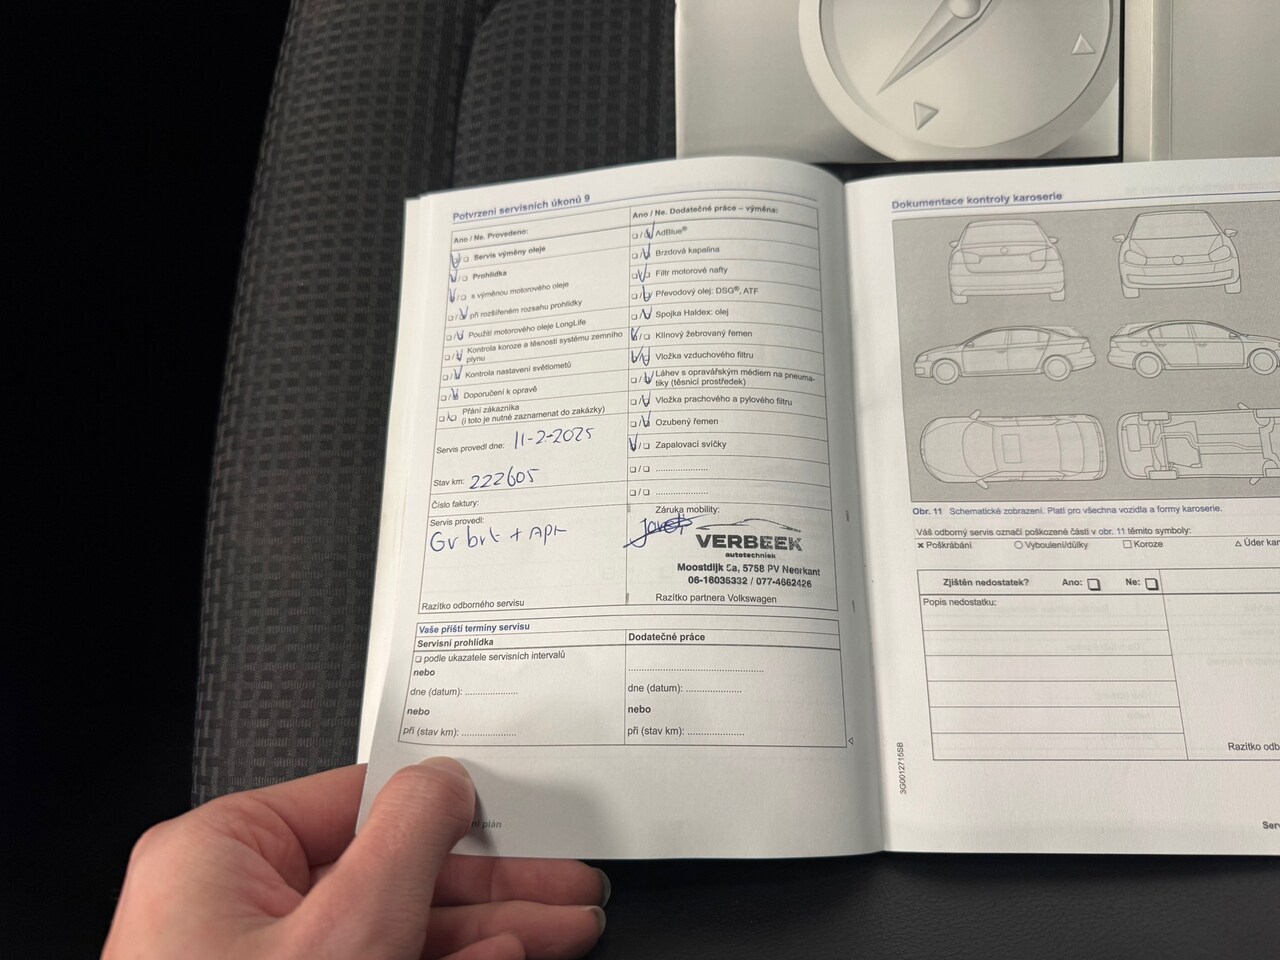 Potvrzení servisních úkonů 9
Ano / Ne. Provedeno:
Servis výměny oleje
Prohlídka
s výměnou motorového oleje
při rozšířeném rozsahu prohlídky
Použití motorového oleje LongLife
Kontrola koroze a těsnosti systému zemního
plynu
Kontrola nastavení světlometů
Doporučení k opravě
Přání zákazníka
(i toto je nutné zaznamenat do zakázky)
Servis provedl dne: 11-2-2025
Stav km: 222605
Číslo faktury:
Servis provedl:
Gv brt + APK
Razítko odborného servisu
Ano / Ne. Dodatečné práce – výměna:
AdBlue®
Brzdová kapalina
Filtr motorové nafty
Převodový olej: DSG®, ATF
Spojka Haldex: olej
Klínový žebrovaný řemen
Vložka vzduchového filtru
Láhev s opravářským médiem na pneuma-
tiky (těsnicí prostředek)
Vložka prachového a pylového filtru
Ozubený řemen
Zapalovací svíčky
Záruka mobility:
VERBEEK
autotechniek
Moostdijk 5a, 5758 PV Neerkant
06-16035332 / 077-4662426
Razítko partnera Volkswagen
Vaše příští termíny servisu
Servisní prohlídka
podle ukazatele servisních intervalů
nebo
dne (datum): ....................
nebo
při (stav km): ....................
Dodatečné práce
dne (datum): ....................
nebo
při (stav km): ....................
ní plán
Dokumentace kontroly karoserie
Obr. 11 Schematické zobrazení. Platí pro všechna vozidla a formy karoserie.
Váš odborný servis označí poškozené části v obr. 11 těmito symboly:
× Poškrábání ○ Vyboulení/důlky □ Koroze △ Úder kam
Zjištěn nedostatek? Ano: □ Ne: □
Popis nedostatku:
Razítko odb
3G0012715SB
Ser